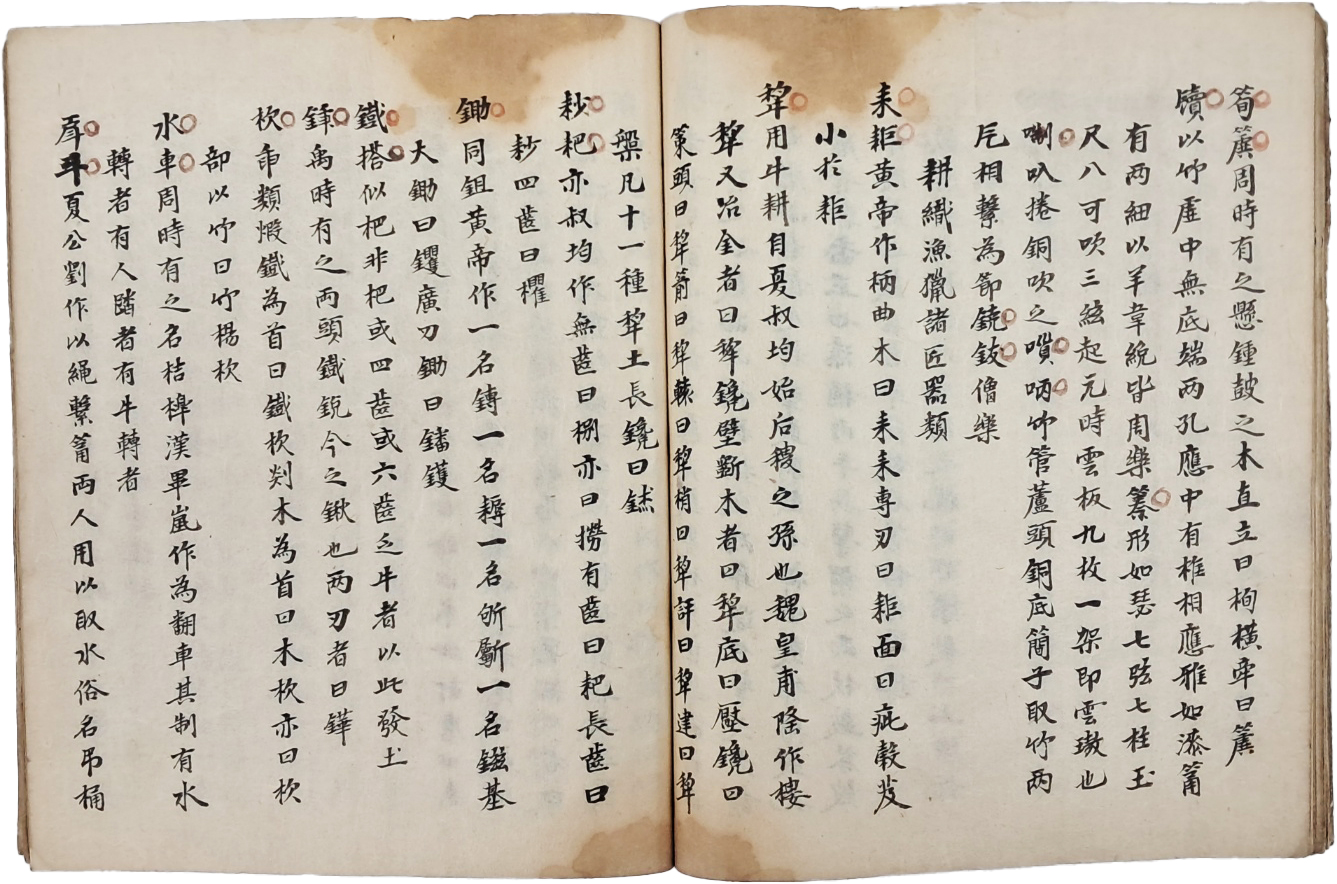 筍簴周時有之懸鍾鼓之木直立曰栒橫牽曰簴
牘以竹虛中無底端两孔應中有椎相應雅如漆筩
有两細以羊韋䋎皆周樂䉒形如瑟七弦七柱玉
尺八可吹三絃起元時雲板九枚一架即雲璈也
喇叭捲銅吹之嗩㖼竹管蘆頭銅底簡子取竹两
片相擊為節鐃鈸僧樂
耕織漁獵諸匠器類
耒耟黄帝作柄曲木曰耒耒専刃曰耟面曰疵轂芟
小扵耟
犂用牛耕自夏叔均始后稷之孫也魏皇甫隆作樓
犂又冶金者曰犂鑱壁斲木者曰犂底曰壓鑱曰
策頭曰犂箭曰犂轅曰犂梢曰犂評曰犂建曰犂
槃凡十一種犂土長鑱曰鉥
耖耙亦叔均作無齒曰㭭亦曰撈有齒曰耙長齒曰
耖四齒曰欋
鋤同鉏黄帝作一名鎛一名耨一名斪斸一名鎡基
大鋤曰钁廣刃鋤曰鐇钁
鐵搭似杷非杷或四齒或六齒乏牛者以此發土
鍤禹時有之两頭鐵銳今之鍬也两刃者曰鏵
杴䤙類煅鐵為首曰鐵杴剡木為首曰木杴亦曰杴
部以竹曰竹楊杴
水車周時有之名桔槔漢畢嵐作為翻車其制有水
轉者有人踏者有牛轉者
戽斗夏公劉作以繩繫筩両人用以取水俗名吊桶